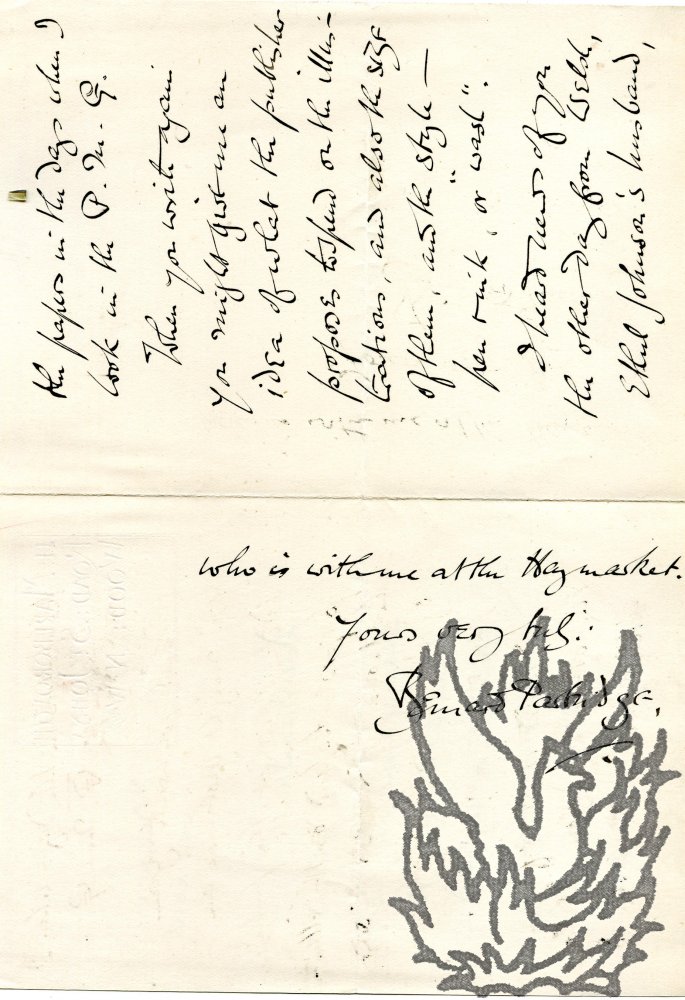 the papers in the days when I
took in the P. M. G.
When you write again
you might give me an
idea of what the publisher
proposes to spend on the illus-
trations, and also the size
of them, and the style —
"pen & ink, or wash".
I heard news of you
the other day from Welsh,
Ethel Johnson's husband,
who is with me at the Haymarket.
Yours very truly:
Bernard Partridge.